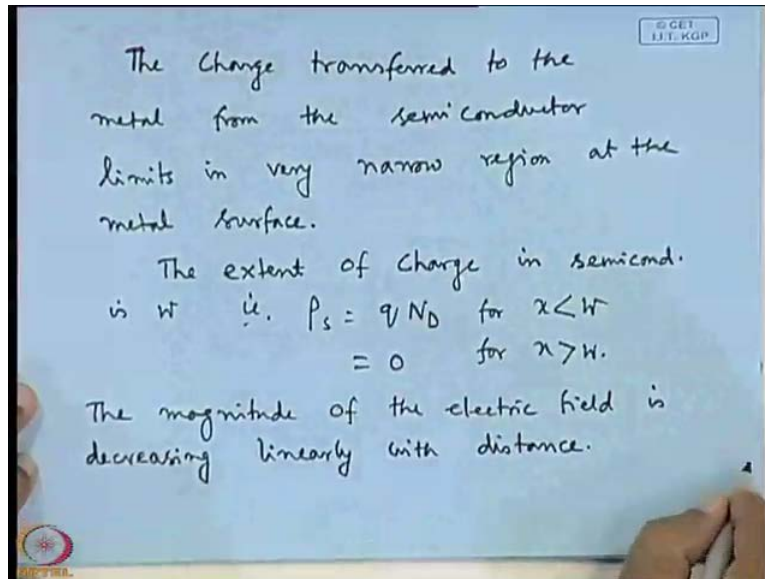 © CET
I.I.T. KGP
The Charge transferred to the
metal from the semiconductor
limits in very narrow region at the
metal surface.
The extent of charge in semicond.
is W i.e. ρs = q ND for x<W
= 0 for x>W.
The magnitude of the electric field is
decreasing linearly with distance.
NPTEL